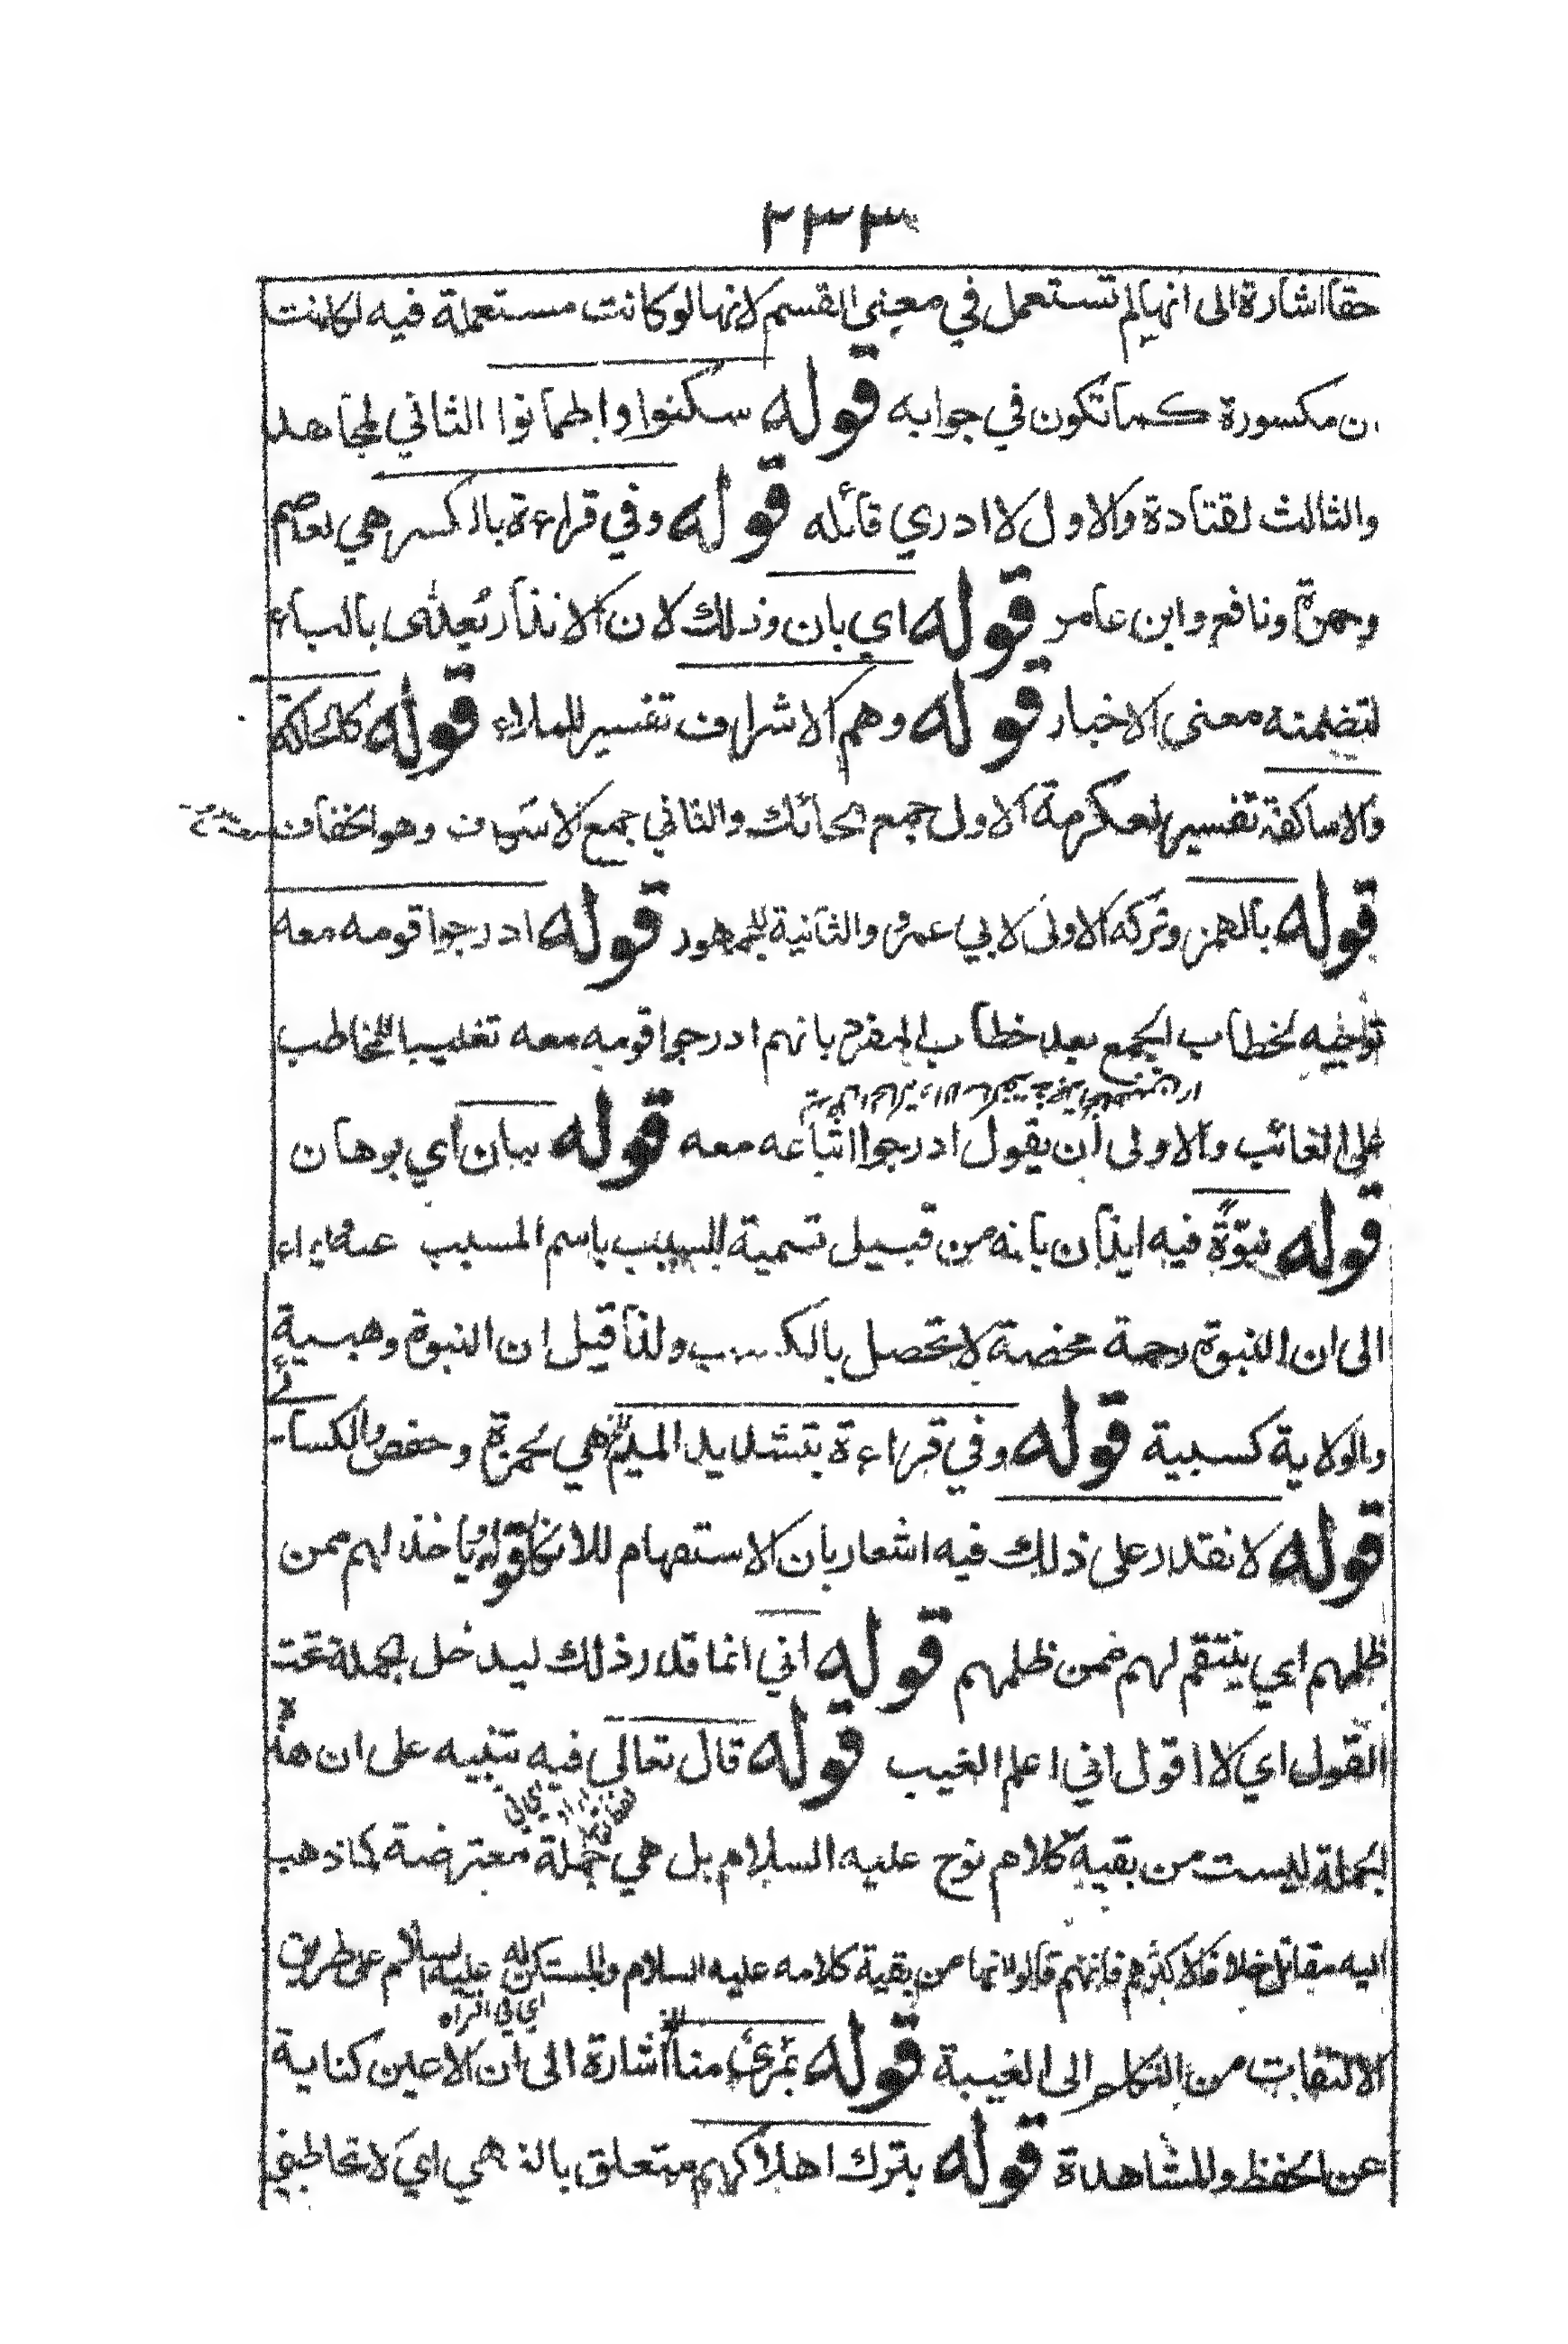 ٢٣٣
حقا اشارة الى انها لم تستعمل في معنى القسم لانها لو كانت مستعملة فيه لكانت
ان مكسورة كما تكون في جوابه قوله سكنوا واطمانوا الثاني لمجاهد
والثالث لقتادة والاول لا ادري قائله قوله وفي قراءة بالكسر هي لعاصم
وحمزة ونافع وابن عامر قوله اي بان وذلك لان الانذار يُعدّى بالباء
لتضمنه معنى الاخبار قوله وهم الاشراف تفسير للملاء قوله كالحاكة
والاساكفة تفسير لعكرمة الاول جمع الحائك والثاني جمع الاسكاف وهو الخفاف
قوله بالهمز وتركه الاولى لابي عمرو والثانية للجمهور قوله ادرجوا قومه معه
توجيه لخطاب الجمع بعد خطاب المفرد بانهم ادرجوا قومه معه تغليبا للمخاطب
على الغائب والاولى أن يقول ادرجوا اتباعه معه قوله بيان أي برهان
قوله نبوّةً فيه ايذان بانه من قبيل تسمية للسبب باسم المسبب
الى ان النبوة رحمة محضة لا تحصل بالكسب ولذا قيل ان النبوة وهبية
والولاية كسبية قوله وفي قراءة بتشديد الميم الخ هي لحمزة وحفص والكسائي
قوله لا نقدر على ذلك فيه اشعار بان الاستفهام للانكار قوله ياخذ لهم ممن
ظلمهم اي ينتقم لهم ممن ظلمهم قوله اني انما قدر ذلك ليدخل الجملة تحت
القول اي لا اقول اني اعلم الغيب قوله قال تعالى فيه تنبيه على ان هذه
الجملة ليست من بقية كلام نوح عليه السلام بل هي جملة معترضة كما ذهب
اليه مقاتل خلافا لاكثرهم فانهم قالوا انها من بقية كلامه عليه السلام والمستكن له عليه السلام على طريق
اي في افتراه
الالتفات من التكلم الى الغيبة قوله بمرئ منا الخ اشارة الى ان الاعين كناية
عن الحفظ والمشاهدة قوله بترك اهلاكهم متعلق بالنهي اي لا تخاطبني